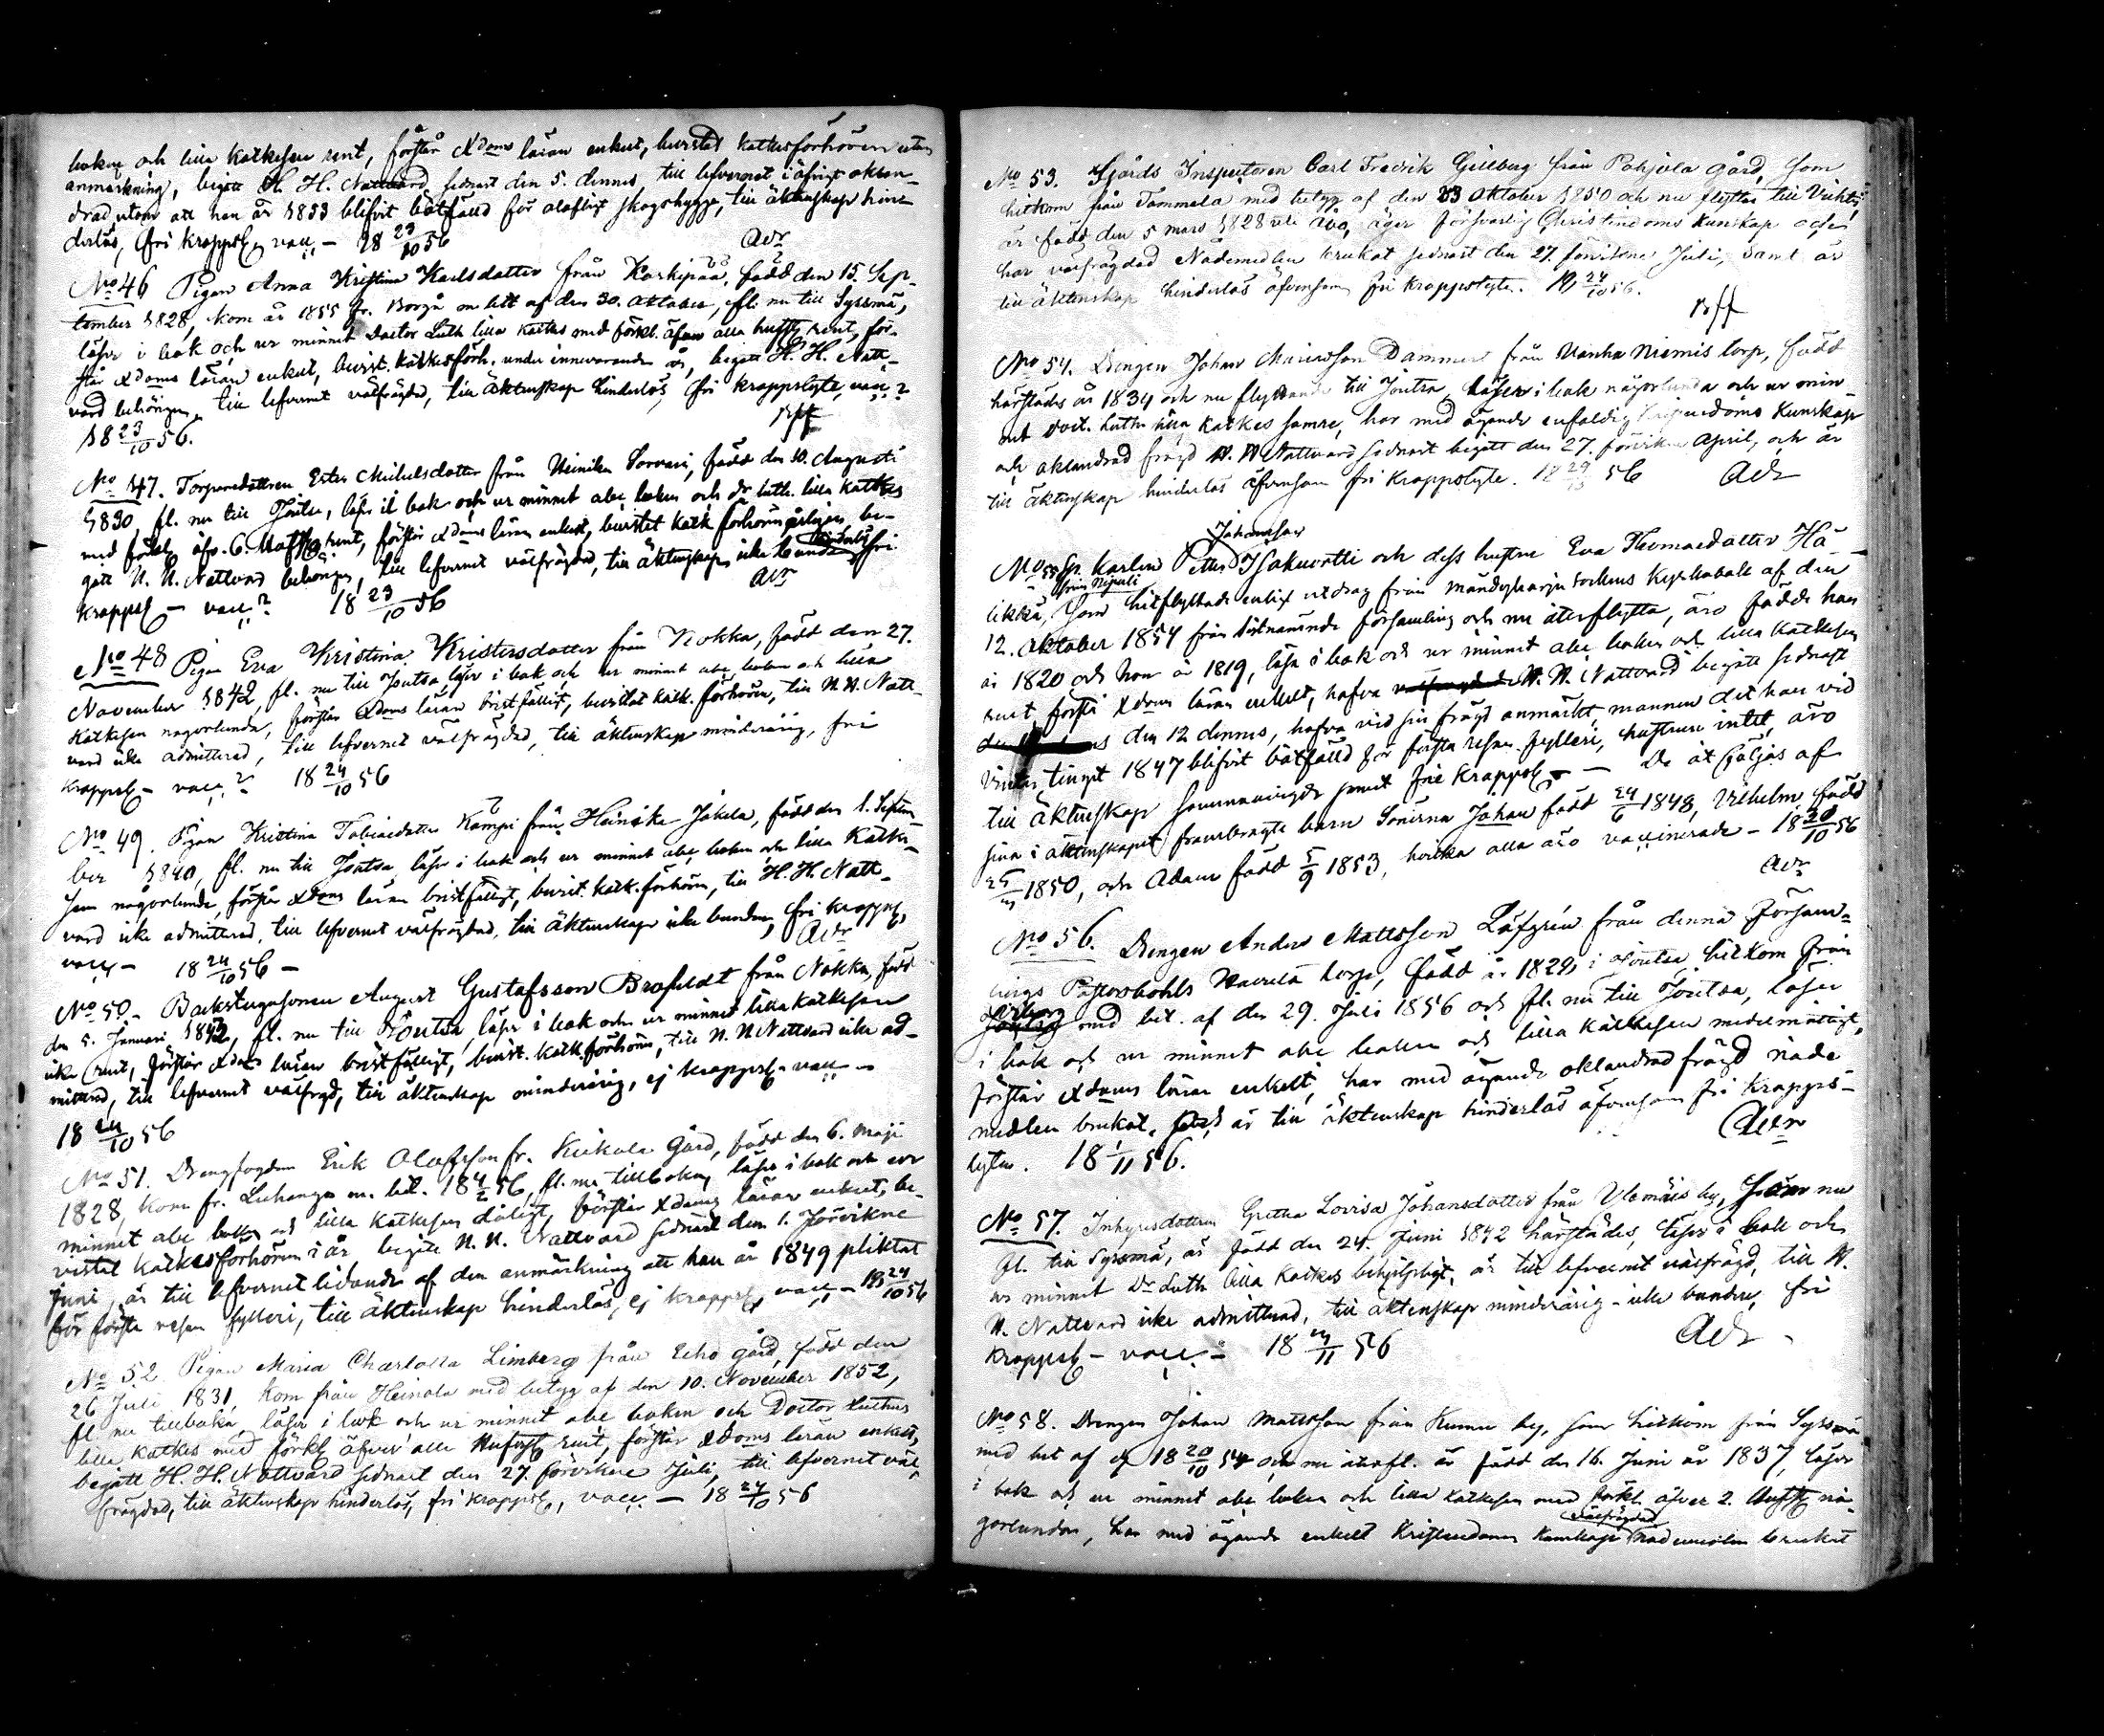 boken och lilla Katkesen rent, förstår Xdoms läran enkelt, bevistat katkesförhören utan
anmärkning, begått H. H. Nattvard sednast den 5. dennes, till lefvernet i öfrigt oklan-
drad utom att han år 1853 blifvit bötfälld för olofligt skogshygge, till äktenskap hin-
derlös, fri kroppsl. vacc. - 18 23/10 56
Adr
No 46 Pigan Anna Kristina Karlsdotter från Karkipää, född den 15. Sep-
tember 1828, kom år 1855 fr. Borgå m bet. af den 30. oktober, fl. nu till Syssmä,
läser i bok och ur minnet Doctor Luth. lilla Katkes med förkl. äfver alla hufst. rent, för-
står Xdoms läran enkelt, bevist. katkesförh. under innevarande år, begått H. H. Natt-
vard behörigen, till lefvernet välfrägdad, till äktenskap hinderlös, fri kroppslyte, vacc.
18 23/10 56.
No 47. Torparedottren Ester Michelsdotter från Heinike Sorvari, född den 30. Augusti
1830, fl. nu till Joutsa, läser i bok och ur minnet abc boken och Dr Luth. lilla Katkes
med förkl. äfv. 6. rent, förstår Xdoms läran enkelt, bevistat katk. förhören årligen, be-
gått H. H. Nattvard behörigen, till lefvernet välfrägdad, till äktenskap icke bunden, fri
kroppsl. - vacc. 18 23/10 56
Adr
No 48 Pigan Eva Kristina Kristersdotter från Nokka, född den 27.
November 1842, fl. nu till Joutsa läser i bok och ur minnet abc boken och lilla
Katkesen någorlunda, förstår Xdoms läran bristfälligt, bevistat katk. förhören, till H. H. Natt-
vard icke admitterad, till lefvernet välfrägdad, till äktenskap minderårig, fri
kroppsl - vacc. 18 24/10 56
No 49. Pigan Kristina Tobiaedotter Kämpi från Heinike Jokela, född den 1. Septem-
ber 1840, fl. nu till Joutsa, läser i bok och ur minnet abc boken och lilla Katke-
sen någorlunda, förstår Xdoms läran bristfälligt, bevist. katk. förhören, till H. H. Natt-
vard icke admitterad, till lefvernet välfrägdad, till äktenskap icke bunden, fri kroppsl.
vacc. - 18 24/10 56 -
Adr
No 50. Backstugusonen August Gustafsson Brofeldt från Nokka, född
den 5. Januari 1842, fl. nu till Joutsa, läser i bok och ur minnet lilla Katkesen
icke rent, förstår Xdoms läran bristfälligt, bevist. katk. förhören, till H. H. Nattvard icke ad-
mitterad, till lefvernet välfrägd, till äktenskap minderårig, ej kroppsl. vacc -
18 24/10 56
No 51. Drengfogden Erik Olofsson fr. Keikala Gård, född den 6. Maji
1828, kom fr. Luhanga m. bet. 18 4/2 56, fl. nu tillbaka, läser i bok och ur
minnet abc boken och lilla Katkesen dåligt, förstår Xdoms läran enkelt, be-
vistat katkesförhören i år, begått H. H. Nattvard sednast den 1. förvikne
Juni, är till lefvernet lidande af den anmärkning att han år 1849 pliktat
för första resan fylleri, till äktenskap hinderlös, ej kroppsl. vacc. - 18 24/10 56
No 52. Pigan Maria Charlotta Limberg från Echo gård, född den
26 Juli 1831, kom från Heinola med betyg af den 10. November 1852,
fl nu tillbaka, läser i bok och ur minnet abc boken och Doctor Luthers
lilla Katkes med förkl. äfver alla Hufvst. rent, förstår Xdoms läran enkelt,
begått H. H. Nattvard sednast den 27. förvikne Juli, till lefvernet väl-
frägdad, till äktenskap hinderlös, fri kroppsl., vacc. - 18 24/10 56
No 53. Gårds Inspectoren Carl Fredrik Gillberg från Pohjola gård, som
hitkom från Tammela med betyg af den 23 Oktober 1850 och nu flyttar till Vichtis,
är född den 5 mars 1828 uti Åbo, äger försvarlig Christendoms kunskap och
har välfrägdad Nådemedlen brukat sednast den 27. förvikne Juli, samt är
till äktenskap hinderlös äfvensom fri kroppslyte. 18 24/10 56.
No 54. Drengen Johan Dammer från Vanha Niemis torp, född
härstädes år 1834 och nu flyttande till Joutsa, läser i bok någorlunda och ur min-
net Doct. Luth. lilla Katkes samre, har med ägande enfaldig kunskap
och oklandrad frägd H. H. Nattvard sednast begått den 27. förvikne April, och är
till äktenskap hinderlös äfvensom fri kroppslyte. 18 29/10 56
Adr
Johansson
No 55. Sp. Karlen Petter Isakuntti och dess hustru Eva Thomasdotter Hä-
från Nipuli
likkä, som hitflyttade enligt utdrag från Mändyharju Sockens Kyrkobok af den
12. Oktober 1854 från sistnämnde församling och nu återflytta, äro födde han
år 1820 och hon år 1819, läsa i bok och ur minnet abc boken och lilla Katkesen
rent förstå Xdoms läran enkelt, hafva H. H. Nattvard begått sednast
den 12 dennes, hafva vid sin frägd anmärkt, mannen det han vid
Vintertinget 1847 blifvit bötfälld för första resan fylleri, hustrun intet, äro
till äktenskap sammanvigde samt frie kroppsl - De åtföljas af
sina i äktenskapet frambragte barn Sönerna Johan född 24/6 1848, Vilhelm född
1850, och Adam född 5/9 1853, hvilka alla äro vaccinerade - 18 28/10 56
Adr
No 56. Drengen Anders Mattsson Löfgrén från denna Försam-
lings Pastorsbohls torp, född år 1829 i Joutsa, hitkom från
med bet. af den 29. Juli 1856 och fl. nu till Joutsa, läser
i bok och ur minnet abc boken och lilla Katkesen medelmåttigt,
förstår Xdoms läran enkelt, har med ägande oklandrad frägd nåde
medlen brukat, är till äktenskap hinderlös äfvensom fri kropps-
lytes. 18 1/11 56.
Adr
No 57. Inhysesdottren Gretha Lovisa Johansdotter från Ylemäis by, som nu
fl. till Syssmä, är född den 24. Juni 1842 härstädes, läser i bok och
ur minnet Dr Luth lilla Katkes behjelpligt, är till lefvernet välfrägd, till H.
H. Nattvard icke admitterad, till äktenskap minderårig - icke bunden, fri
kroppsl - vacc. - 18 /11 56
Adr
No 58. Drengen Johan Mattsson från Kumu by, som hitkom från Syssmä
med bet af d 18 20/10 54 och nu återfl. är född den 16. Juni år 1837, läser
i bok och ur minnet abc boken och lilla Katkesen med förkl. äfver 2. Hufst. nå-
välfrägdad
gorlunda, har med ägande enkelt Kristendoms kunskap nådemedlen brukat